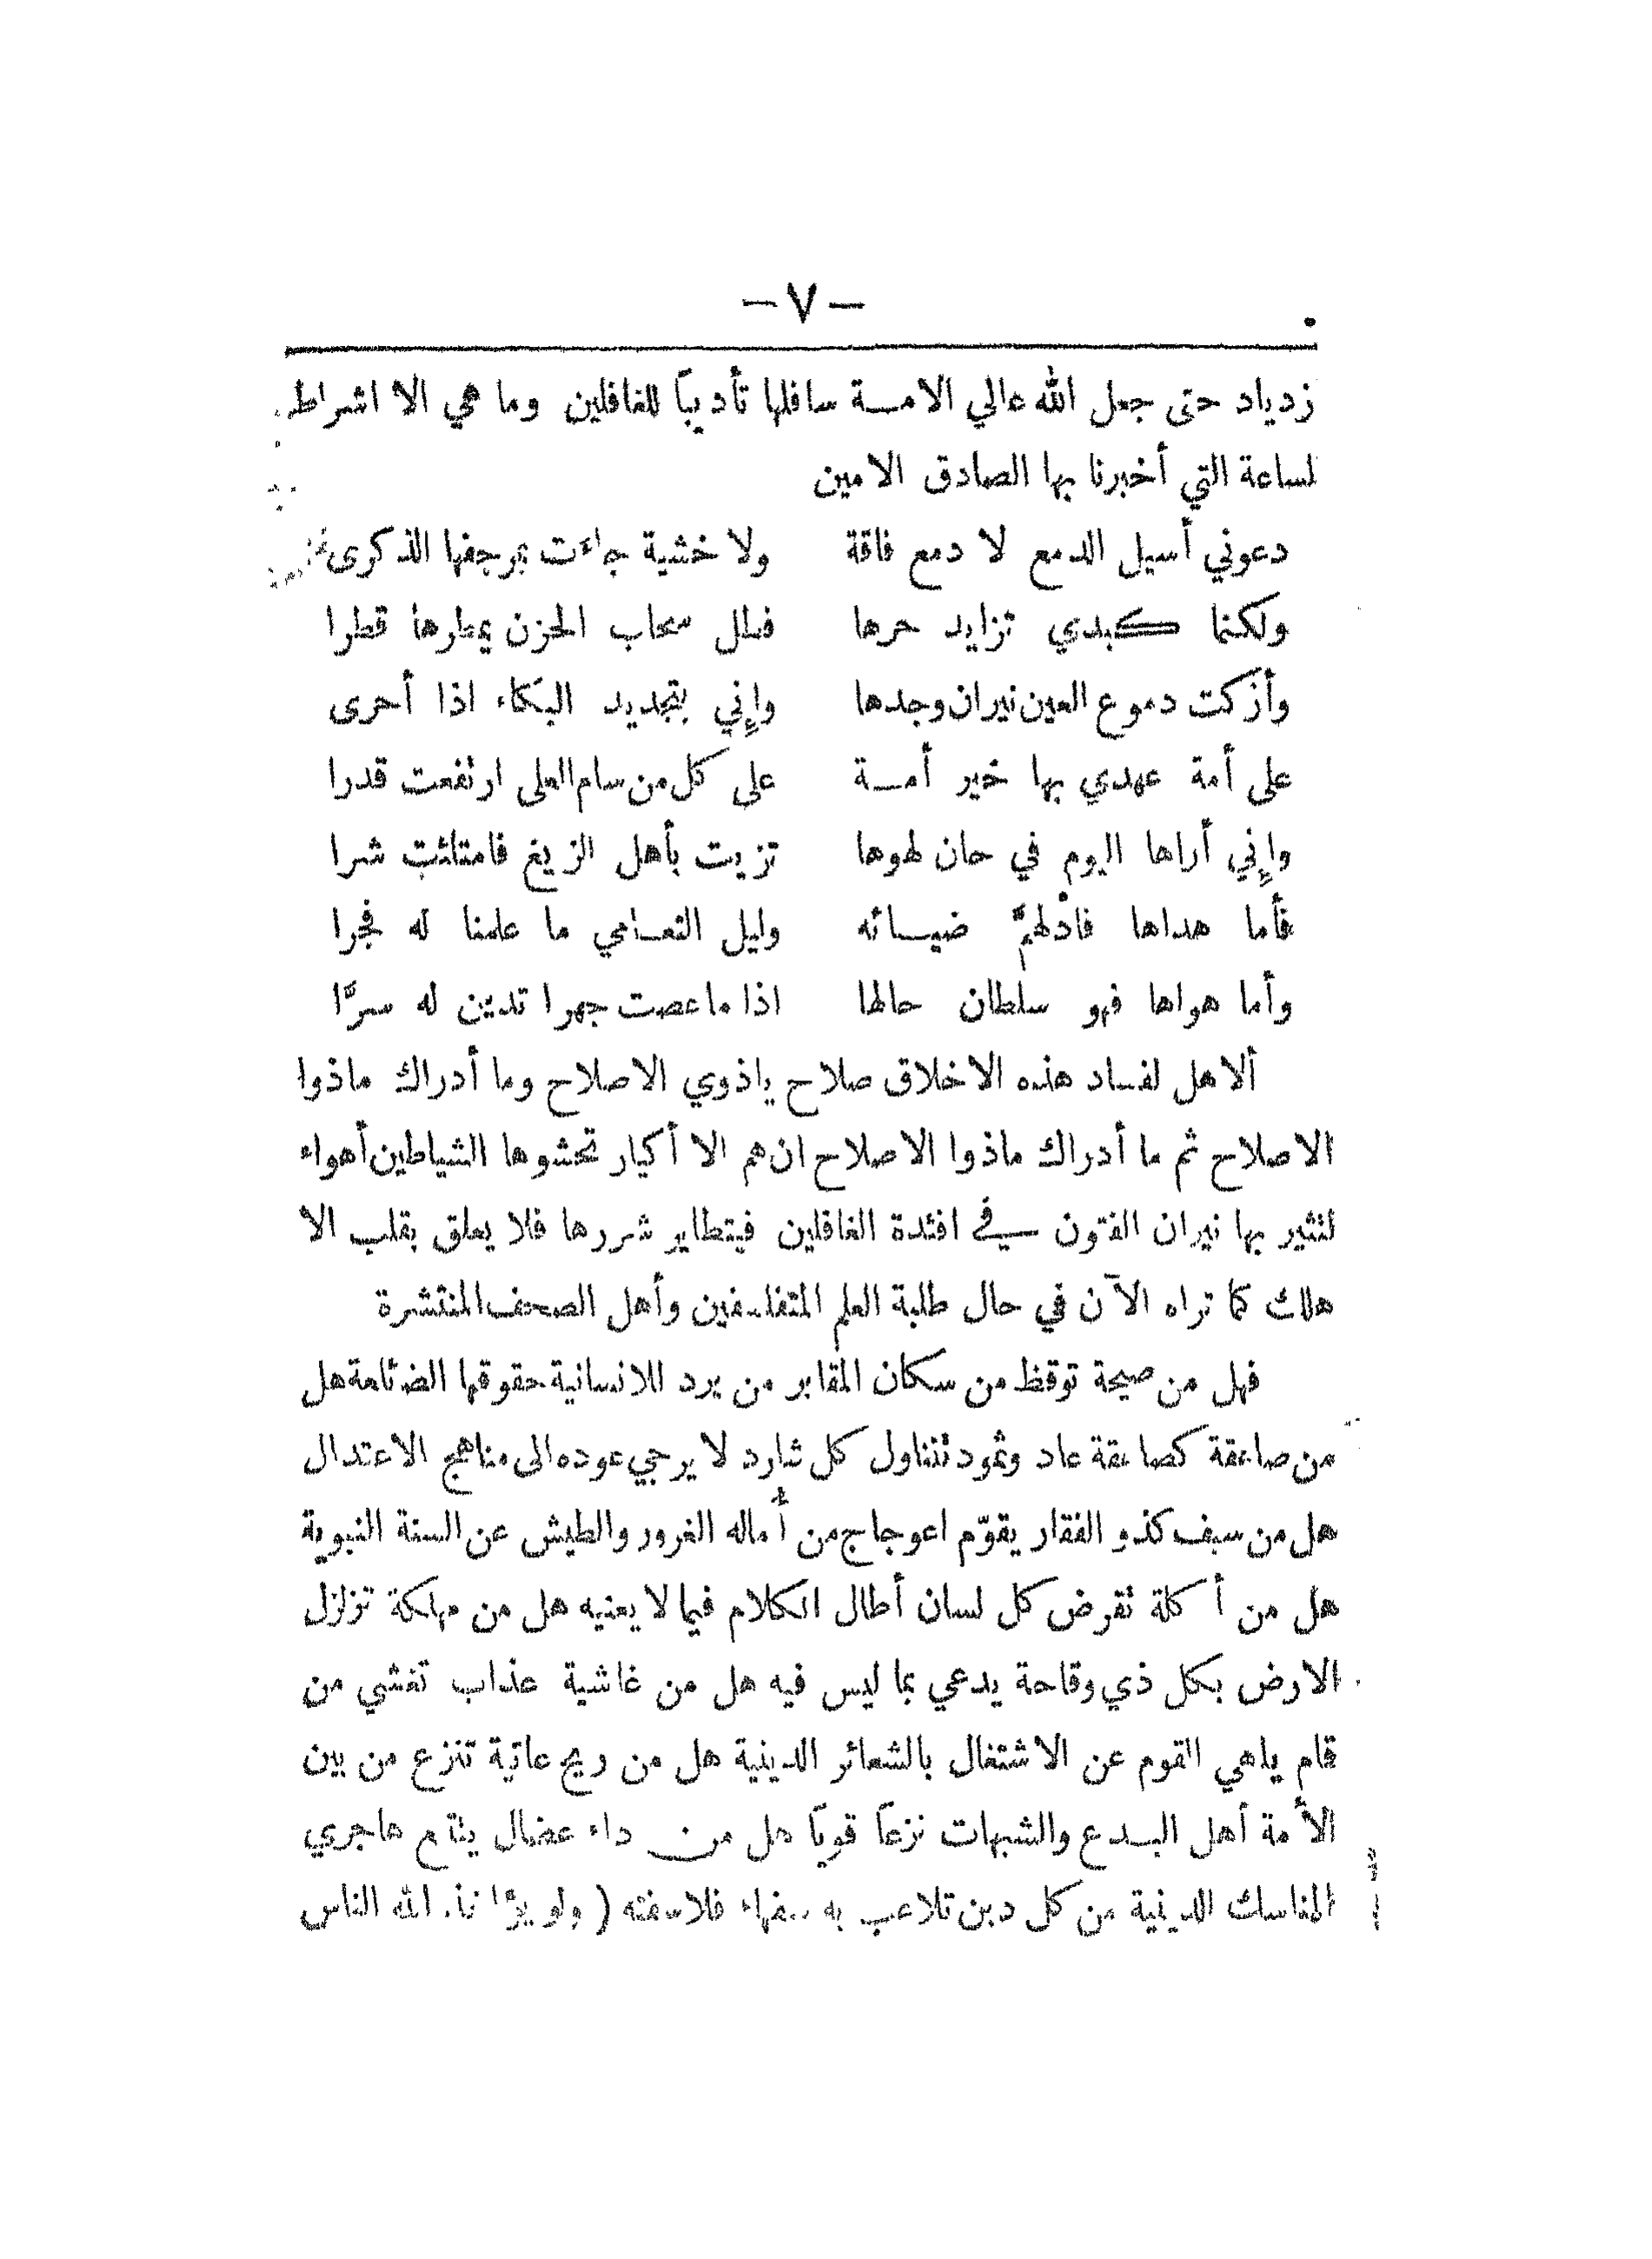 — ٧ —
زدياد حتى جعل الله عالي الامــة سافلها تأديباً للغافلين وما هي الا اشراط
لساعة التي أخبرنا بها الصادق الامين
دعوني أسيل الدمع لا دمع فاقة ولا خشية جاءت بمرجفها الذكرى
ولكنما كبدي تزايد حرها فملل سحاب الحزن يمطرها قطرا
وأزكت دموع العين نيران وجدها وإني بتجديد البكاء اذا أحرى
على أمة عهدي بها خير أمــة على كل من سام العلى ارتفعت قدرا
وإني أراها اليوم في حان لهوها تزيت بأهل الزيغ فامتلئت شرا
فأما هداها فادْلهمَّ ضيــائه وليل التعــامي ما علمنا له فجرا
وأما هواها فهو سلطان حالها اذا ما عصت جهرا تدين له سرًّا
ألا هل لفساد هذه الاخلاق صلاح ياذوي الاصلاح وما أدراك ماذوا
الاصلاح ثم ما أدراك ماذوا الاصلاح ان هم الا أكيار تحشوها الشياطين أهواء
لتثير بها نيران الفتون في افئدة الغافلين فيتطاير شررها فلا يعلق بقلب الا
هلك كما تراه الآن في حال طلبة العلم المتفلسفين وأهل الصحف المنتشرة
فهل من صيحة توقظ من سكان المقابر من يرد للانسانية حقوقها الضائعة هل
من صاعقة كصاعقة عاد وثمود تتناول كل شارد لا يرجي عوده الى مناهج الاعتدال
هل من سيف كذو الفقار يقوّم اعوجاج من أماله الغرور والطيش عن السنة النبوية
هل من أكلة تقرض كل لسان أطال الكلام فيما لا يعنيه هل من مهلكة تزلزل
الارض بكل ذي وقاحة يدعي بما ليس فيه هل من غاشية عذاب تغشي من
قام يلهي القوم عن الاشتغال بالشعائر الدينية هل من ريح عاتية تنزع من بين
الأمة أهل البــدع والشبهات نزعاً قوياً هل من داء عضال ينتاب هاجري
المناسك الدينية من كل دين تلاعب به سفهاء فلاسفته ( ولو يؤاخذ الله الناس